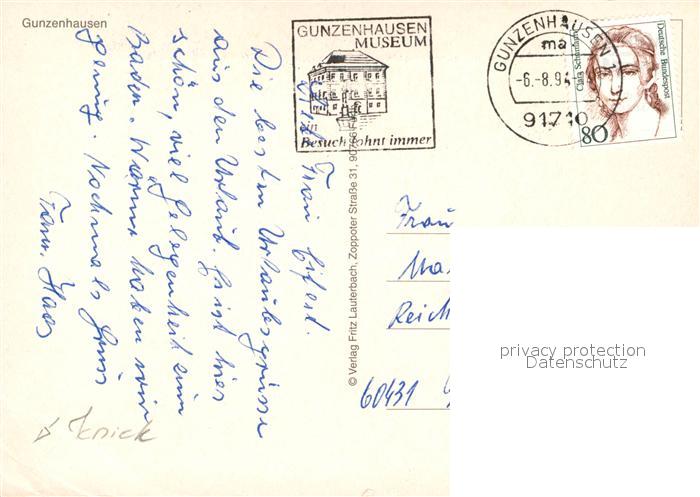 Gunzenhausen
GUNZENHAUSEN
MUSEUM
Ein
Besuch lohnt immer
GUNZENHAUSEN 1
ma
-6.-8.94
91710
Deutsche Bundespost
Clara Schumann
80
© Verlag Fritz Lauterbach, Zoppoter Straße 31, 90
Frau
Die besten Urlaubsgrüsse
aus dem Urlaub. Es ist hier
schön, viel Gelegenheit zum
Baden. Warm haben wir
genug. Nochmals Gruss
Fam. Haas
Frau
Ma
Reich
60431
Knick
privacy protection
Datenschutz